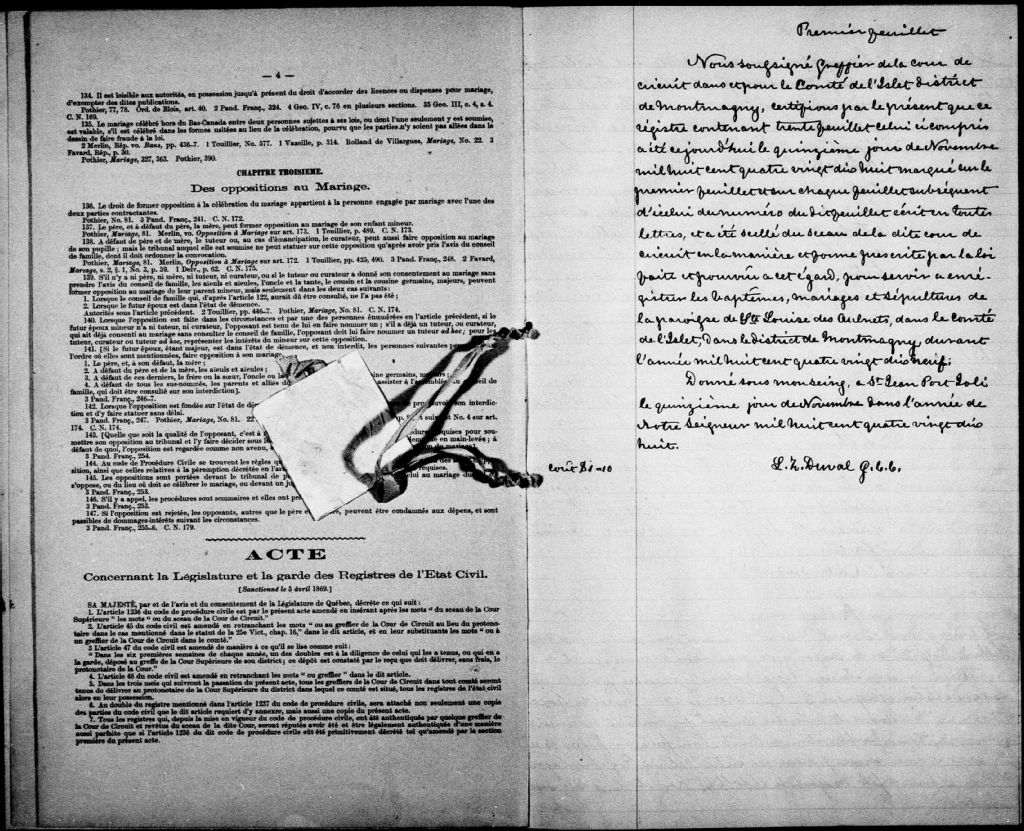 — 4 —
134. Il est loisible aux autorités, en possession jusqu'à présent du droit d'accorder des licences ou dispenses pour mariage,
d'exempter des dites publications.
Pothier, 77, 78. Ord. de Blois, art. 40. 2 Pand. Franç., 324. 4 Geo. IV, c. 76 en plusieurs sections. 35 Geo. III, c. 4, s. 4.
C. N. 169.
135. Le mariage célébré hors du Bas-Canada entre deux personnes sujettes à ses lois, ou dont l'une seulement y est soumise,
est valable, s'il est célébré dans les formes usitées au lieu de la célébration, pourvu que les parties n'y soient pas allées dans le
dessin de faire fraude à la loi.
2 Merlin, Rép. vo. Bans, pp. 436-7. 1 Touillier, No. 577. 1 Vazeille, p. 314. Rolland de Villargues, Mariage, No. 22. 3
Favard, Rép., p. 30.
Pothier, Mariage, 327, 363. Pothier, 390.
CHAPITRE TROISIEME.
Des oppositions au Mariage.
136. Le droit de former opposition à la célébration du mariage appartient à la personne engagée par mariage avec l'une des
deux parties contractantes.
Pothier, No. 81. 3 Pand. Franç., 241. C. N. 172.
137. Le père, et à défaut du père, la mère, peut former opposition au mariage de son enfant mineur.
Pothier, Mariage, 81. Merlin, vo. Opposition à Mariage sur art. 173. 1 Touillier, p. 489. C. N. 173.
138. A défaut de père et de mère, le tuteur ou, au cas d'émancipation, le curateur, peut aussi faire opposition au mariage
de son pupille; mais le tribunal auquel elle est soumise ne peut statuer sur cette opposition qu'après avoir pris l'avis du conseil
de famille, dont il doit ordonner la convocation.
Pothier, Mariage, 81. Merlin, Opposition à Mariage sur art. 172. 1 Touillier, pp. 425, 490. 3 Pand. Franç., 248. 2 Favard,
Mariage, s. 2, § 1, No. 3, p. 59. 1 Delv., p. 62. C. N. 175.
139. S'il n'y a ni père, ni mère, ni tuteur, ni curateur, ou si le tuteur ou curateur a donné son consentement au mariage sans
prendre l'avis du conseil de famille, les aïeuls et aïeules, l'oncle et la tante, le cousin et la cousine germains, majeurs, peuvent
former opposition au mariage de leur parent mineur, mais seulement dans les deux cas suivants:
1. Lorsque le conseil de famille qui, d'après l'article 122, aurait dû être consulté, ne l'a pas été;
2. Lorsque le futur époux est dans l'état de démence.
Autorités sous l'article précédent. 2 Touillier, pp. 446-7. Pothier, Mariage, No. 81. C. N. 174.
140. Lorsque l'opposition est faite dans les circonstances et par une des personnes énumérées en l'article précédent, si le
futur époux mineur n'a ni tuteur, ni curateur, l'opposant est tenu de lui en faire nommer un; s'il a déjà un tuteur, ou curateur,
qui ait déjà consenti au mariage sans consulter le conseil de famille, l'opposant doit lui faire nommer un tuteur ad hoc; pour les
tuteur, curateur ou tuteur ad hoc, représenter les intérêts du mineur sur cette opposition.
141. [Si le futur époux, étant majeur, est dans l'état de démence, et non interdit, les personnes suivantes
l'ordre où elles sont mentionnées, faire opposition à son mariage
1. Le père, et, à son défaut, la mère;
2. A défaut du père et de la mère, les aïeuls et aïeules;
3. A défaut de ces derniers, le frère ou la sœur, l'oncle ou germains, majeurs;
4. A défaut de tous les sus-nommés, les parents et alliés assister à l'assemblée du conseil de
famille, qui doit être consulté sur son interdiction].
3 Pand. Franç., 246-7.
142. Lorsque l'opposition est fondée sur l'état de interdic-
tion et d'y faire statuer sans délai.
3 Pand. Franç., 247. Pothier, Mariage, No. 81. suivant No. 4 sur art.
174. C. N. 174.
143. [Quelle que soit la qualité de l'opposant, c'est à requises pour sou-
mettre son opposition au tribunal et l'y faire décider sous en main-levée; à
défaut de quoi, l'opposition est regardée comme non avenue, du mariage]
3 Pand. Franç., 254.
144. Au code de Procédure Civile se trouvent les règles
sition, ainsi que celles relatives à la péremption décrétée en requises.
145. Les oppositions sont portées devant le tribunal de celui au mariage duquel on
s'oppose, ou du lieu où doit se célébrer le mariage, ou devant un
3 Pand. Franç., 253.
146. S'il y a appel, les procédures sont sommaires et elles ont
3 Pand. Franç., 253.
147. Si l'opposition est rejetée, les opposants, autres que le père et mère, peuvent être condamnés aux dépens, et sont
passibles de dommages-intérêts suivant les circonstances.
3 Pand. Franç., 255-6. C. N. 179.
ACTE
Concernant la Législature et la garde des Registres de l'Etat Civil.
[Sanctionné le 5 avril 1869.]
SA MAJESTÉ, par et de l'avis et du consentement de la Législature de Québec, décrète ce qui suit:
1. L'article 1236 du code de procédure civile est par le présent acte amendé en insérant après les mots " du sceau de la Cour
Supérieure " les mots " ou du sceau de la Cour de Circuit."
2. L'article 45 du code civil est amendé en retranchant les mots " ou au greffier de la Cour de Circuit au lieu du protono-
taire dans le cas mentionné dans le statut de la 25e Vict., chap. 16," dans le dit article, et en leur substituant les mots " ou à
un greffier de la Cour de Circuit dans le comté."
3 L'article 47 du code civil est amendé de manière à ce qu'il se lise comme suit:
" Dans les six premières semaines de chaque année, un des doubles est à la diligence de celui qui les a tenus, ou qui en a
la garde, déposé au greffe de la Cour Supérieure de son district; ce dépôt est constaté par le reçu que doit délivrer, sans frais, le
protonotaire de la Cour."
4. L'article 48 du code civil est amendé en retranchant les mots " ou greffier " dans le dit article.
5. Dans les trois mois qui suivront la passation du présent acte, tous les greffiers de la Cour de Circuit dans tout comté seront
tenus de délivrer au protonotaire de la Cour Supérieure du district dans lequel ce comté est situé, tous les registres de l'état civil
alors en leur possession.
6. Au double du registre mentionné dans l'article 1237 du code de procédure civile, sera attaché non seulement une copie
des parties du code civil que le dit article requiert d'y annexer, mais aussi une copie du présent acte.
7. Tous les registres qui, depuis la mise en vigueur du code de procédure civile, ont été authentiqués par quelque greffier de
la Cour de Circuit et revêtus du sceau de la dite Cour, seront réputés avoir été et être légalement authentiqués d'une manière
aussi parfaite que si l'article 1236 du dit code de procédure civile eût été primitivement décrété tel qu'amendé par la section
première du présent acte.
Premier feuillet
Nous soussigné Greffier de la cour de
circuit dans et pour le Comté de l'Islet district
de Montmagny, certifions par le présent que ce
régistre contenant trente feuillet celui ci compris
a été ce jourd'hui le quinzième jour de Novembre
mil huit cent quatre vingt dix huit marqué sur le
premier feuillet et sur chaque feuillet subséquent
d'icelui du numéro du dit feuillet écrit en toutes
lettres, et a été scellé du sceau de la dite cour de
circuit en la manière et forme prescrite par la loi
faite et pourvue a cet égard, pour servir a enré-
gistrer les baptêmes, mariages et sépultures de
la paroisse de Ste Louise des Aulnets, dans le Comté
de l'Islet, dans le district de Montmagny durant
l'année mil huit cent quatre vingt dix neuf;
Donné sous mon seing, a St Jean Port Joli
le quinzième jour de Novembre dans l'année de
Notre Seigneur mil huit cent quatre vingt dix
huit.
L. Z. Duval G. C. C.